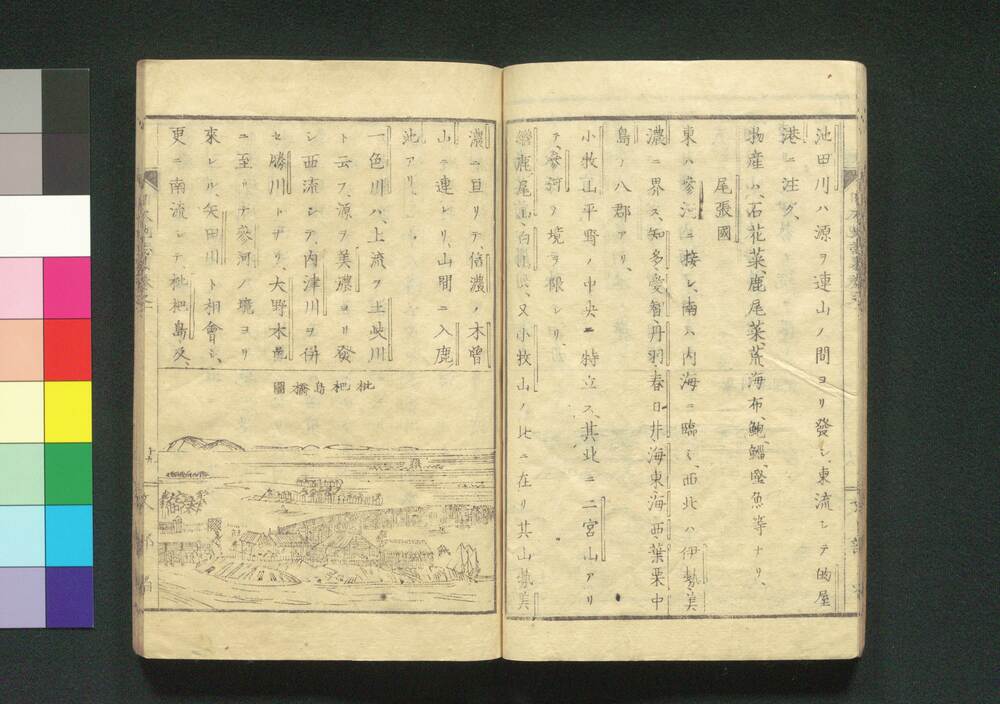 池田川ハ源ヲ連山ノ間ヨリ發シ、東流シテ的屋
港ニ注グ、
物産ハ、石花菜、鹿尾菜、荒海布、鮑、鰡、堅魚等ナリ、
尾張國
東ハ參河ニ接シ、南ハ内海ニ臨ミ、西北ハ伊勢、美
濃ニ界ス、知多、愛智、丹羽、春日井、海東、海西、葉栗、中
島ノ八郡アリ、
小牧山平野ノ中央ニ特立ス、其北ニ二宮山アリ
テ、參河ヲ境ヲ限レリ、
鹿尾山、白山、又小牧山ノ北ニ在リ其山勢美
濃ニ亘リテ、信濃ノ木曾
山ニ連レリ、山間ニ入鹿
池アリ、
一色川ハ、上流ヲ土岐川
ト云フ、源ヲ美濃ヨリ發
シ西流シテ、内津川ヲ併
セ勝川トナリ、大野木
ニ至リテ參河ノ境ヨリ
來レル矢田川ト相會シ、
更ニ南流シテ、枇杷島及
枇杷島橋圖